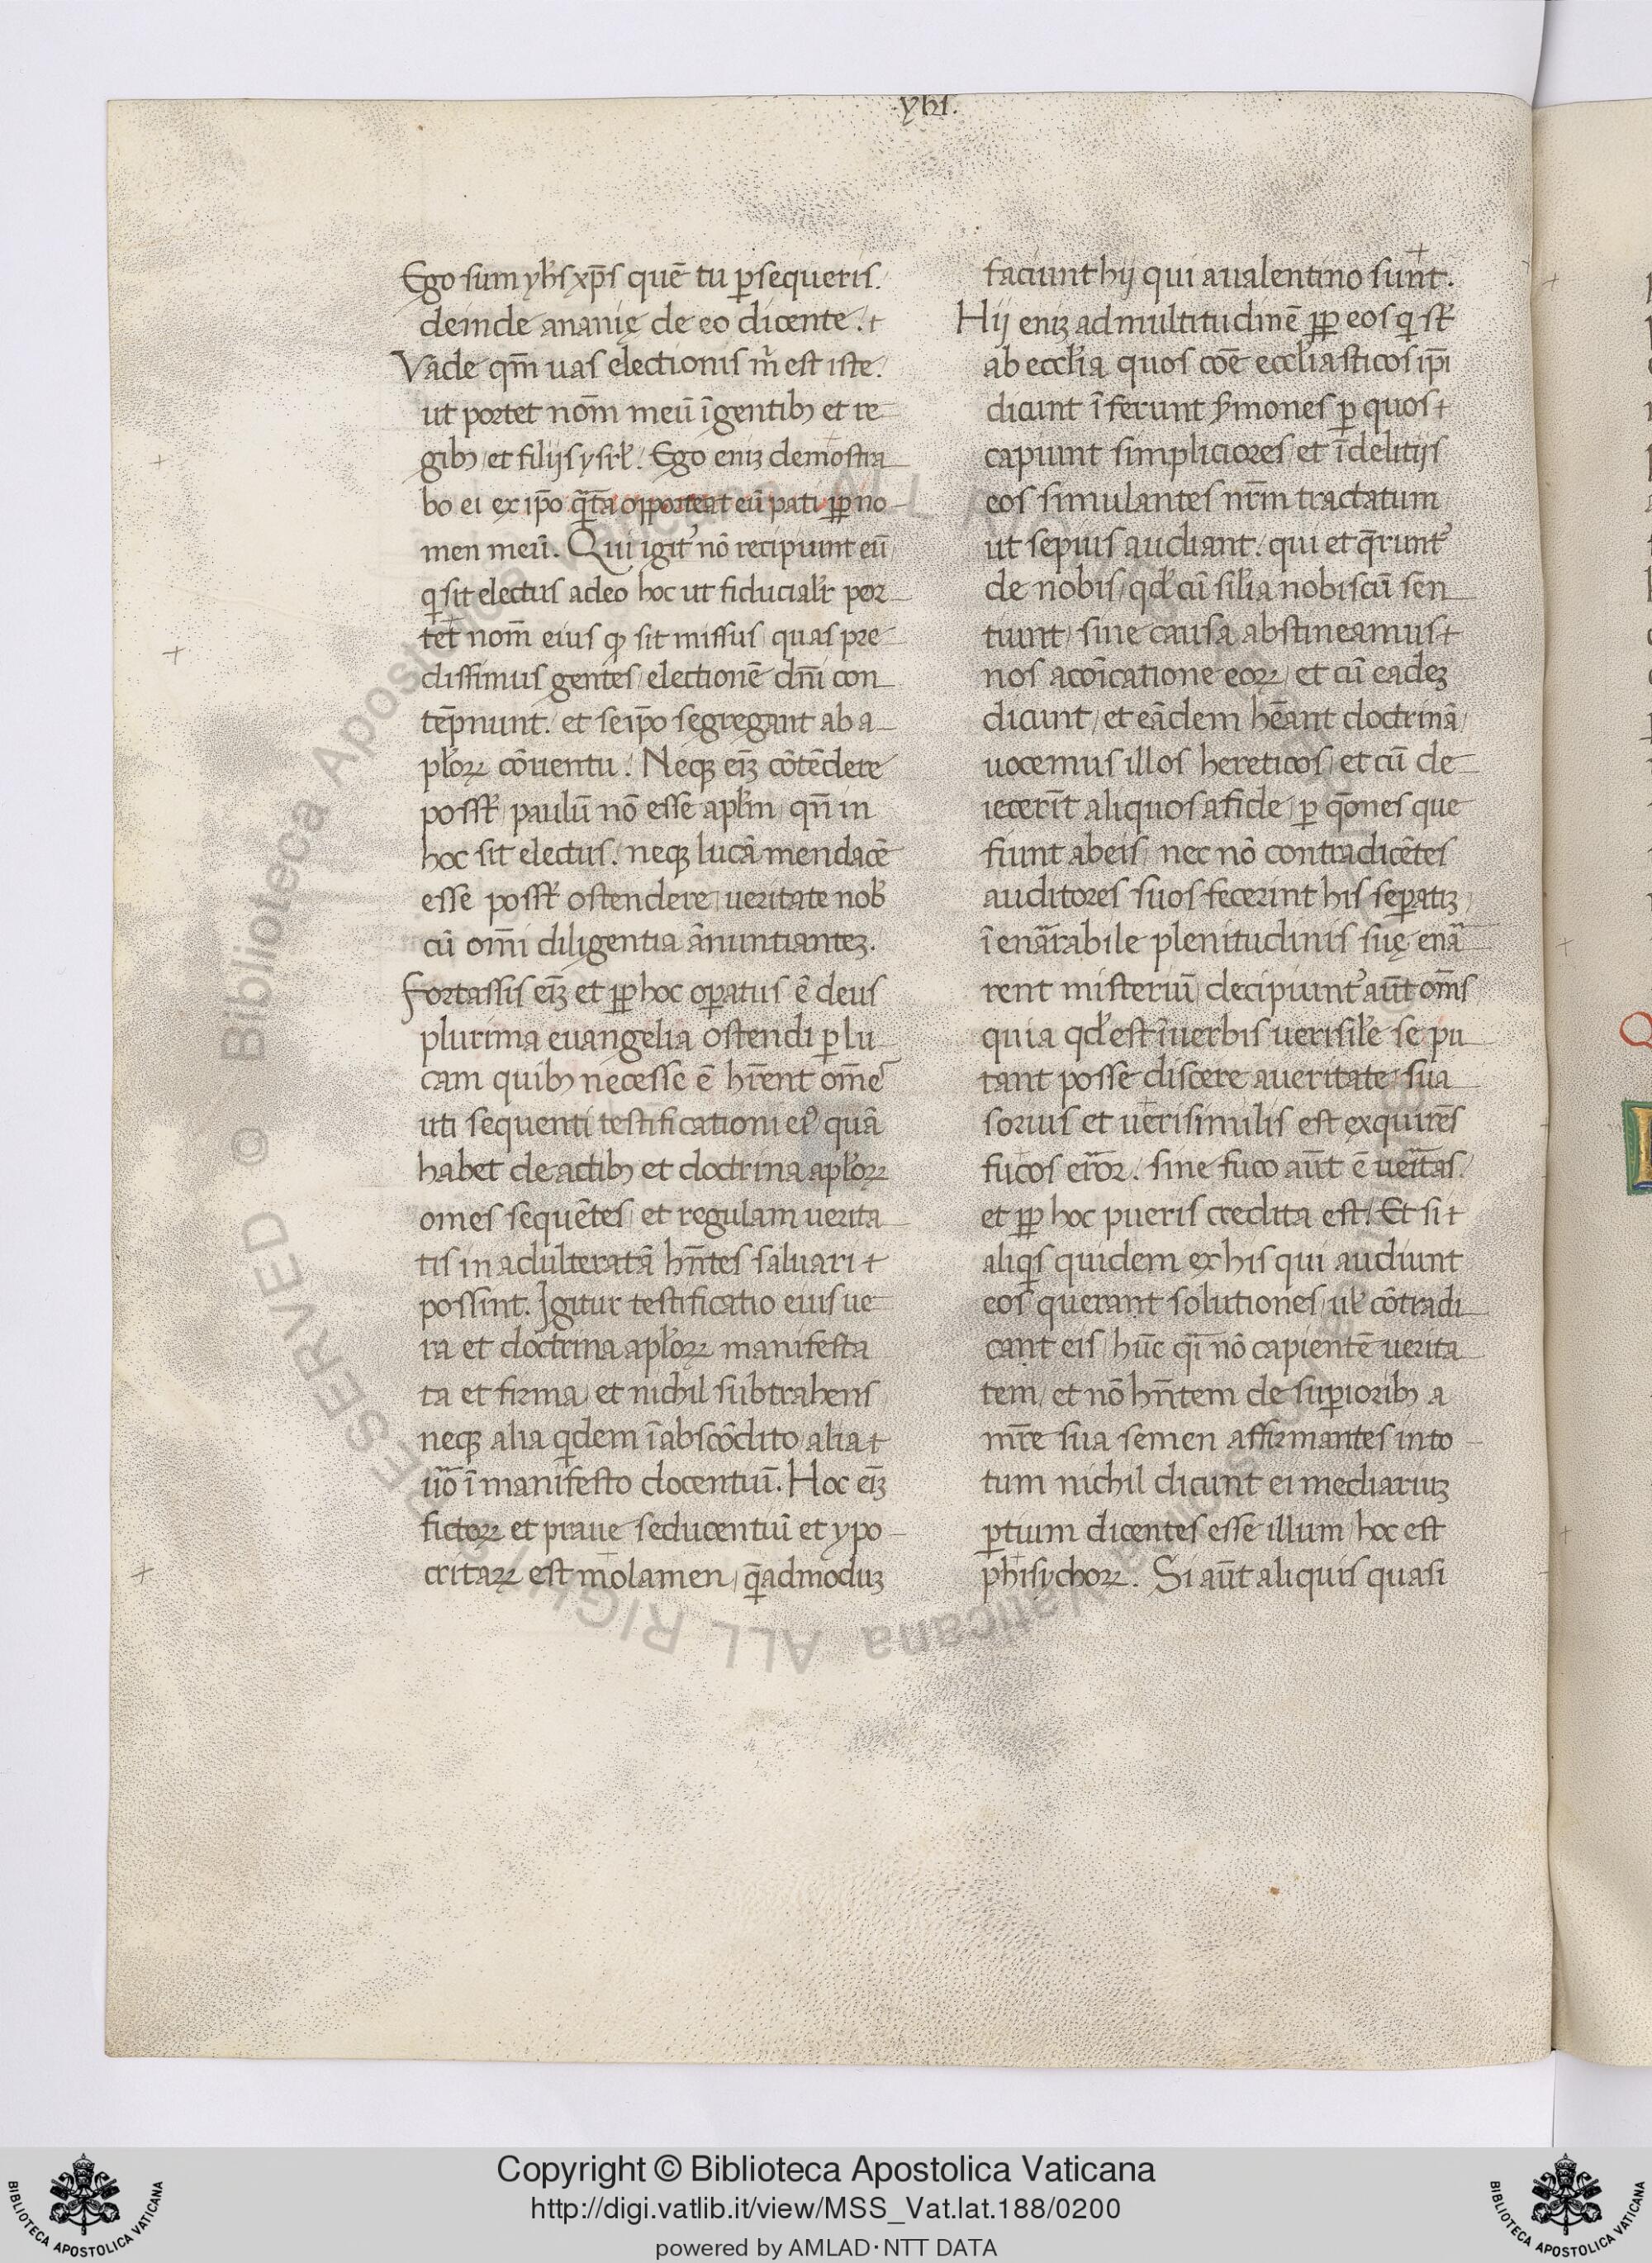 yhs.
Ego sum yhs xp̄s quē tu ꝑsequeris.
deinde ananię de eo dicente.
Vade qm̄ uas electionis m̄ est iste.
ut portet nom̄ meū īgentibꝫ et re
gibꝫ et filijs ysrl̓. Ego eniꝫ demostra
bo ei ex ip̄o q̄ta opporteat eū pati ꝓp no
men meū. Qui igit̓ nō recipiunt eū
q̇ sit electus adeo hoc ut fiducialr̓ por
tet nom̄ eius ꝙ sit missus quas pre
diximus gentes electionē dn̄i con
tēpnunt. et seip̄o segregant ab a
pl̓oꝝ cōuentu. Neqꝫ eīꝫ cōtēdere
posst̓ paulū nō esse apl̓m qn̄ in
hoc sit electus. neqꝫ lucā mendacē
esse posst̓ ostendere ueritate nob̓
cū om̄i diligentia ānuntianteꝫ.
fortassis eīꝫ et ꝓp hoc oꝑatus ē deus
plurima euangelia ostendi ꝑ lu
cam quibꝫ necesse ē hr̄ent om̄e
uti sequenti testificationi eiꝰ quā
habet de actibꝫ et doctrina apl̓oꝝ
omes sequētes et regulam uerita
tis in adulteratā hn̄tes saluari
possint. Igitur testificatio eius ue
ra et doctrina apl̓oꝝ manifesta
ta et firma et nichil subtrahens
neqꝫ alia qdem ī abscōdito alia
u̅o ī manifesto docentuī. Hoc eīꝫ
fictoꝝ et praue seducentiū et ypo
critaꝝ est molamen q̄admoduꝫ
faciunt hij qui aualentino sunt.
Hij eniꝫ ad multitudinē ꝓp eos q̇ st̓
ab eccl̓ia quos coē eccl̓iasticos ip̄i
dicunt ī ferunt s̄mones ꝑ quos
capiunt simpliciores et ī delitijs
eos simulantes nr̄m tractatum
ut sepius audiant. qui et q̄runt̓
de nobis qd̓ cū sil̓ia nobiscū sen
tiunt sine causa abstineamus
nos acoīcatione eoꝝ et cū eadeꝫ
dicunt et eādem hēant doctrinā
uocemus illos hereticos et cū de
iecerīt aliquos a fide ꝑ q̄ones que
fiunt abeis nec nō contradicētes
auditores suos fecerint his seꝑatiꝫ
ī enārabile plenitudinis suę enā
rent misteriū decipiunt̓ aūt om̄s
quia qd̓ est ī uerbis uerisil̓e se pu
tant posse discere aueritate sua
sorius et uerisimilis est exquirēs
fucos error. sine fuco aūt ē ueritas
et ꝓp hoc pueris credita est. Et si
aliq̇s quidem ex his qui audiunt
eos querant solutiones ul̓ cōtradi
cant eis hūc q̄i nō capientē uerita
tem et nō hn̄tem de suꝑioribꝫ a
mr̄e sua semen affirmantes in to
tum nichil dicunt ei mediariuꝫ
ꝑtium dicentes esse illum hoc est
phisychoꝝ. Si aūt aliquis quasi
Copyright © Biblioteca Apostolica Vaticana
http://digi.vatlib.it/view/MSS_Vat.lat.188/0200
powered by AMLAD·NTT DATA